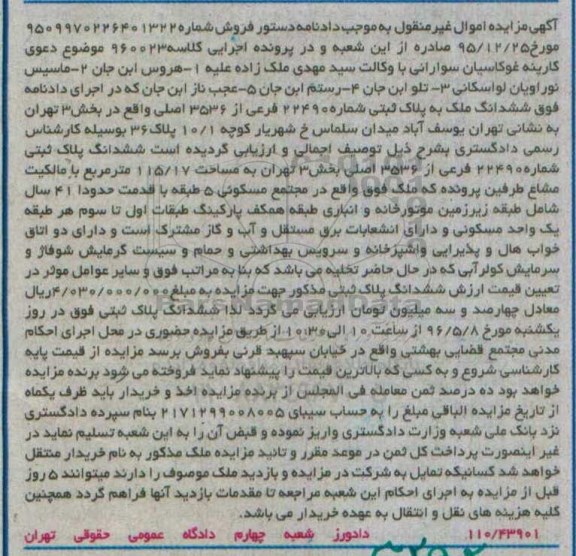 آگهی مزایده اموال غیر منقول به موجب دادنامه دستور فروش شماره ۹۵۰۹۹۷۰۲۲۶۴۰۱۳۲۲
مورخ ۹۵/۱۲/۲۵ صادره از این شعبه و در پرونده اجرایی کلاسه ۹۶۰۰۲۳ موضوع دعوی
کارینه غوکاسیان سوارانی با وکالت سید مهدی ملک زاده علیه ۱-هروس ابن جان ۲-ماسیس
نور اویان لواسکانی ۳- تلو ابن جان ۴-رستم ابن جان ۵-عجب ناز ابن جان که در اجرای دادنامه
فوق ششدانگ ملک به پلاک ثبتی شماره ۲۲۴۹۰ فرعی از ۳۵۳۶ اصلی واقع در بخش ۳ تهران
به نشانی تهران یوسف آباد میدان سلماس خ شهریار کوچه ۱۰/۱ پلاک ۳۶ بوسیله کارشناس
رسمی دادگستری بشرح ذیل توصیف اجمالی و ارزیابی گردیده است ششدانگ پلاک ثبتی
شماره ۲۲۴۹۰ فرعی از ۳۵۳۶ اصلی بخش ۳ تهران به مساحت ۱۱۵/۱۷ مترمربع با مالکیت
مشاع طرفین پرونده که ملک فوق واقع در مجتمع مسکونی ۵ طبقه با قدمت حدودا ۴۱ سال
شامل طبقه زیرزمین موتورخانه و انباری طبقه همکف پارکینگ طبقات اول تا سوم هر طبقه
یک واحد مسکونی و دارای انشعابات برق مستقل و آب و گاز مشترک است و دارای دو اتاق
خواب هال و پذیرایی و آشپزخانه و سرویس بهداشتی و حمام و سیست گرمایش شوفاژ و
سرمایش کولر آبی که در حال حاضر تخلیه می باشد که بنا به مراتب فوق و سایر عوامل موثر در
تعیین قیمت ارزش ششدانگ پلاک ثبتی مذکور جهت مزایده به مبلغ ۴/۰۳۰/۰۰۰/۰۰۰ ریال
معادل چهارصد و سه میلیون تومان ارزیابی می گردد لذا ششدانگ پلاک ثبتی فوق در روز
یکشنبه مورخ ۹۶/۵/۸ از ساعت ۱۰ الی ۱۰:۳۰ از طریق مزایده حضوری در محل اجرای احکام
مدنی مجتمع قضایی بهشتی واقع در خیابان سپهبد قرنی بفروش برسد مزایده از قیمت پایه
کارشناسی شروع و به کسی که بالاترین قیمت را پیشنهاد نماید فروخته می شود برنده مزایده
خواهد بود ده درصد ثمن معامله فی المجلس از برنده مزایده اخذ و خریدار باید ظرف یکماه
از تاریخ مزایده الباقی مبلغ را به حساب سیبای ۲۱۷۱۲۹۹۰۰۸۰۰۵ بنام سپرده دادگستری
نزد بانک ملی شعبه وزارت دادگستری واریز نموده و قبض آن را به این شعبه تسلیم نماید در
غیر اینصورت پرداخت کل ثمن در موعد مقرر و تائید مزایده ملک مذکور به نام خریدار منتقل
خواهد شد کسانیکه تمایل به شرکت در مزایده و بازدید ملک موصوف را دارند میتوانند ۵ روز
قبل از مزایده به اجرای احکام این شعبه مراجعه تا مقدمات بازدید آنها فراهم گردد همچنین
کلیه هزینه های نقل و انتقال به عهده خریدار می باشد.
۱۱۰/۴۳۹۰۱ دادورز شعبه چهارم دادگاه عمومی حقوقی تهران